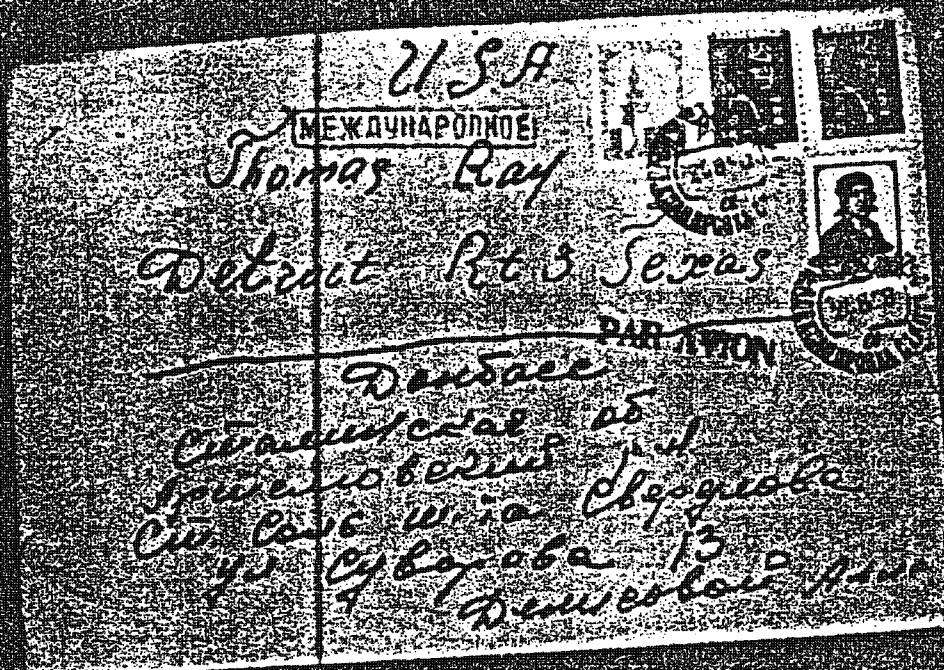 USA
МЕЖДУНАРОДНОЕ
Thomas Ray
Detroit Rt 3 Texas
PAR AVION
Донбасс
Сталинская об
ст Соль ш-та Свердлова
ул Суворова 13
Денисовой